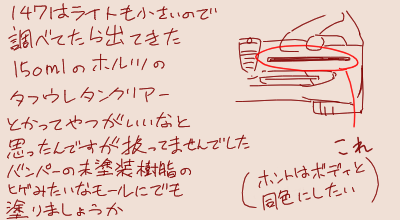 147はライトも小さいので
調べてたら出てきた
150mlのホルツの
タフウレタンクリアー
とかってやつがいいなと
思ったんですが扱ってませんでした
バンパーの未塗装樹脂の
ヒゲみたいなモールにでも
塗りましょうか
これ
(ホントはボディと
同色にしたい)